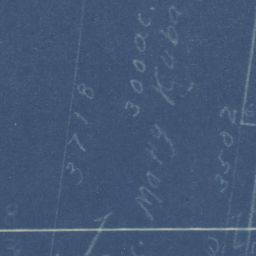 3718
300ac.
Mary Kuba
3502